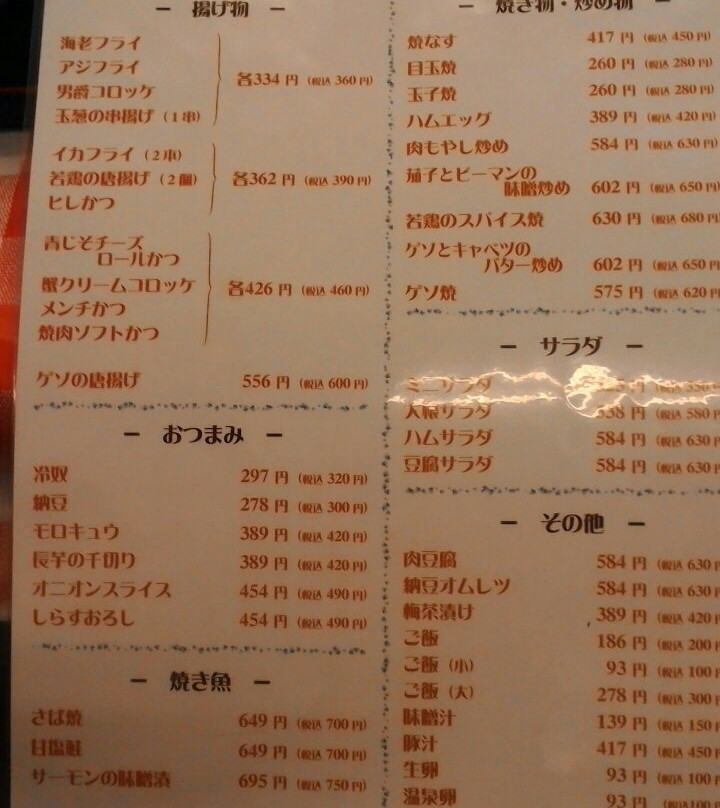 ― 揚げ物 ―
海老フライ
アジフライ
男爵コロッケ
玉葱の串揚げ（1串）
各334円（税込 360円）
イカフライ（2本）
若鶏の唐揚げ（2個）
ヒレかつ
各362円（税込 390円）
青じそチーズ
ロールかつ
蟹クリームコロッケ
メンチかつ
焼肉ソフトかつ
各426円（税込 460円）
ゲソの唐揚げ 556円（税込 600円）
― おつまみ ―
冷奴 297円（税込 320円）
納豆 278円（税込 300円）
モロキュウ 389円（税込 420円）
長芋の千切り 389円（税込 420円）
オニオンスライス 454円（税込 490円）
しらすおろし 454円（税込 490円）
― 焼き魚 ―
さば焼 649円（税込 700円）
甘塩鮭 649円（税込 700円）
サーモンの味噌漬 695円（税込 750円）
― 焼き物・炒め物 ―
焼なす 417円（税込 450円）
目玉焼 260円（税込 280円）
玉子焼 260円（税込 280円）
ハムエッグ 389円（税込 420円）
肉もやし炒め 584円（税込 630円）
茄子とピーマンの
味噌炒め 602円（税込 650円）
若鶏のスパイス焼 630円（税込 680円）
ゲソとキャベツの
バター炒め 602円（税込 650円
ゲソ焼 575円（税込 620円
― サラダ ―
ミニサラダ 円（税込 350円
大根サラダ 538円（税込 580円
ハムサラダ 584円（税込 630円
豆腐サラダ 584円（税込 630円
― その他 ―
肉豆腐 584円（税込 630円
納豆オムレツ 584円（税込 630円
梅茶漬け 389円（税込 420円
ご飯 186円（税込 200円
ご飯（小） 93円（税込 100円
ご飯（大） 278円（税込 300円
味噌汁 139円（税込 150円
豚汁 417円（税込 450円
生卵 93円（税込 100円
温泉卵 93円（税込100円